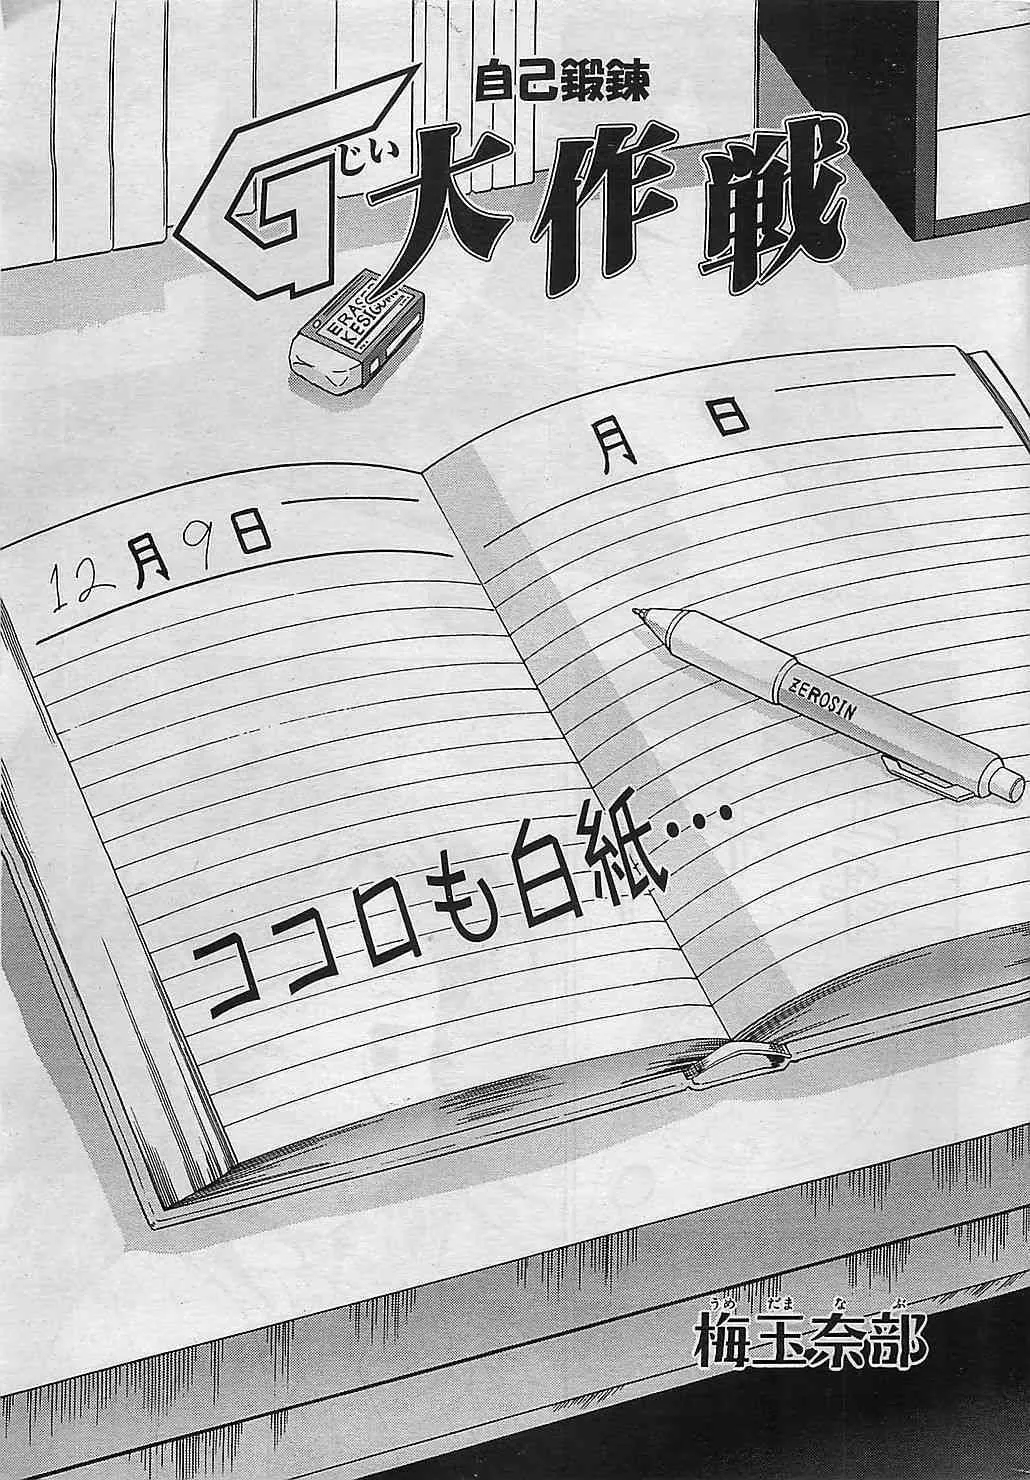 自己鍛錬
G大作戦
じい
ERASER
KESIGOM
月 日
12月9日
ZEROSIN
ココロも白紙…
うめだまなぶ
梅玉奈部